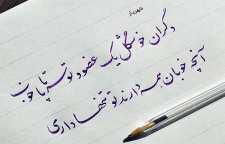 دگران خوشگل یک عضو و تو سر تا پا خوب
آنچه خوبان همه دارند تو تنها داری